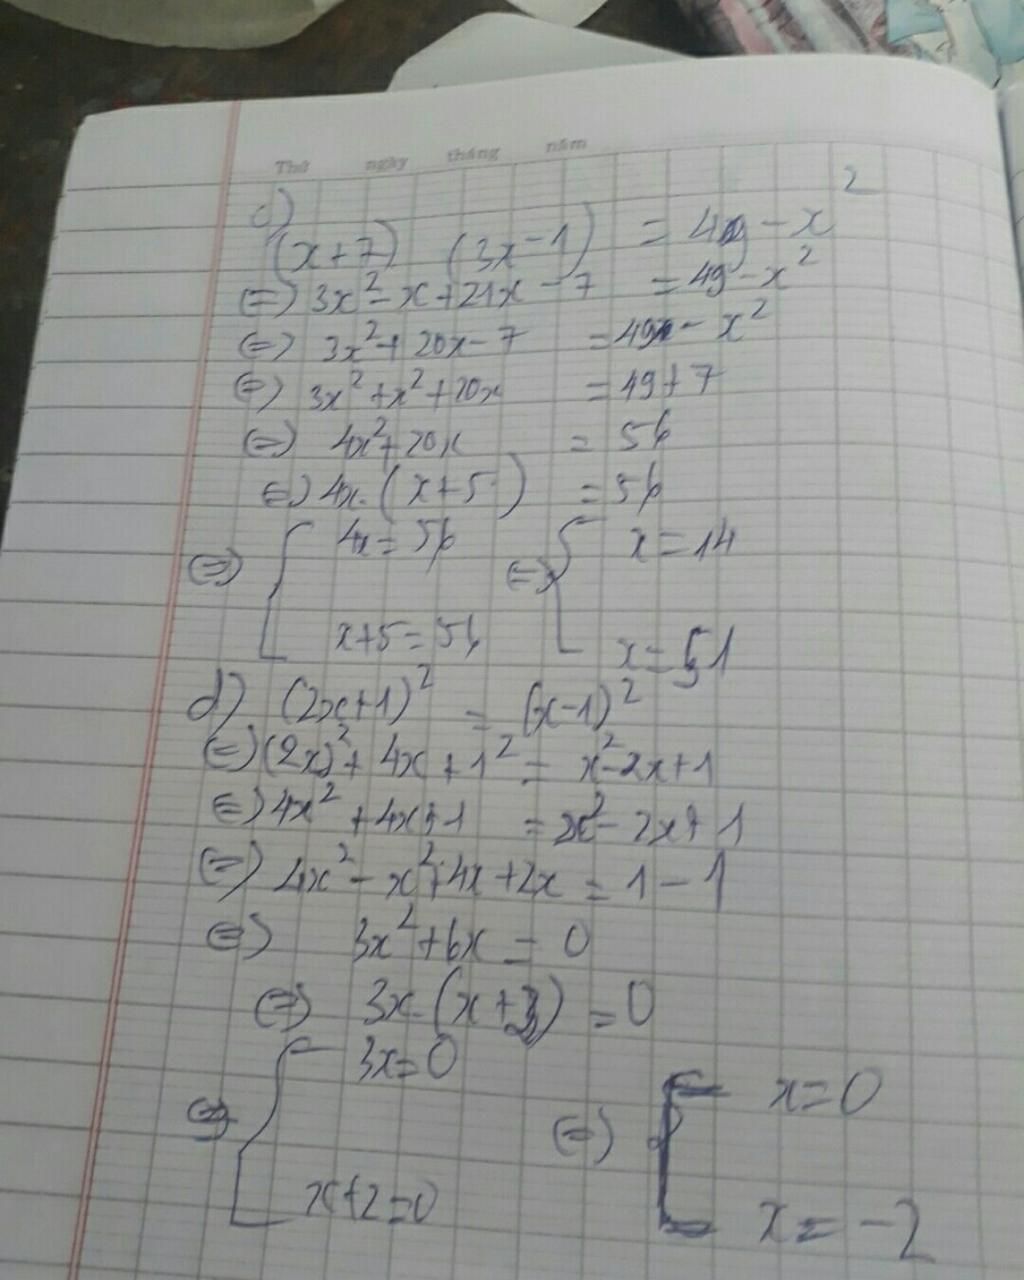 Thứ ngày tháng năm
c)
(x+7) (3x-1) = 49 - x²
(=) 3x² - x + 21x - 7 = 49 - x²
(=) 3x² + 20x - 7 = 49 - x²
(=) 3x² + x² + 20x = 49 + 7
(=) 4x² + 20x = 56
(=) 4x. (x+5) = 56
(=) [ 4x = 56 (=) [ x = 14
x+5 = 56 x = 51
d) (2x+1)² = (x-1)²
(=) (2x)² + 4x + 1² = x² - 2x + 1
(=) 4x² + 4x + 1 = x² - 2x + 1
(=) 4x² - x² + 4x + 2x = 1 - 1
(=) 3x² + 6x = 0
(=) 3x. (x+2) = 0
(=) [ 3x = 0 (=) [ x = 0
x+2 = 0 x = -2